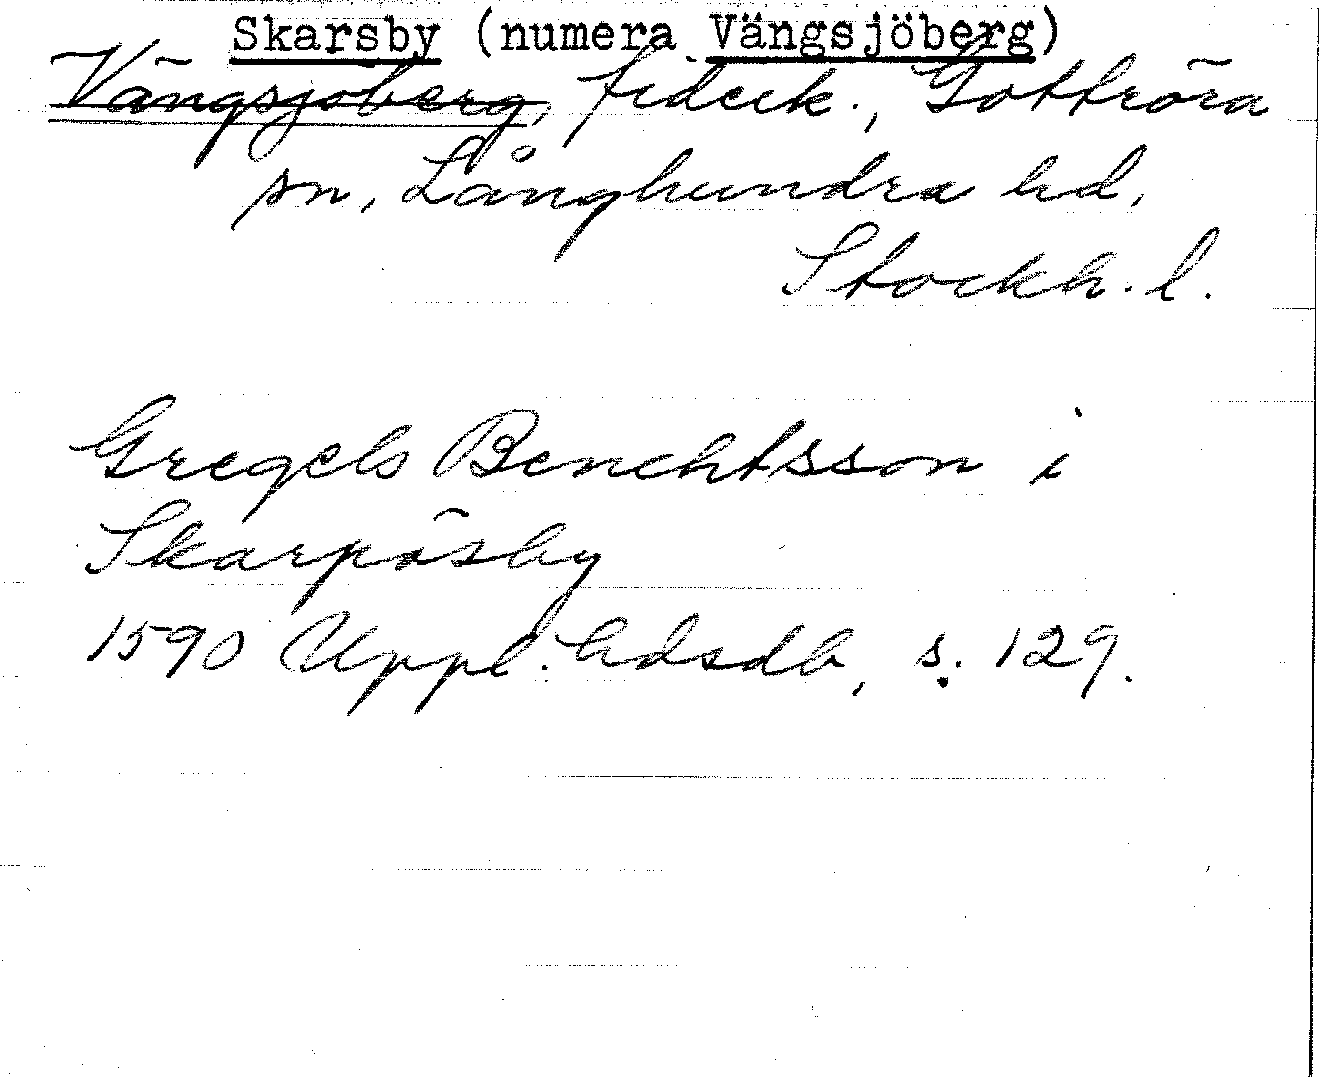 Skarsby (numera Vängsjöberg)
Vängsjöberg, fideik., Gottröra
sn, Långhundra hd,
Stockh. l.
Gregels Benchtsson i
Skarpösby
1590 Uppl. hdsdb, s. 129.